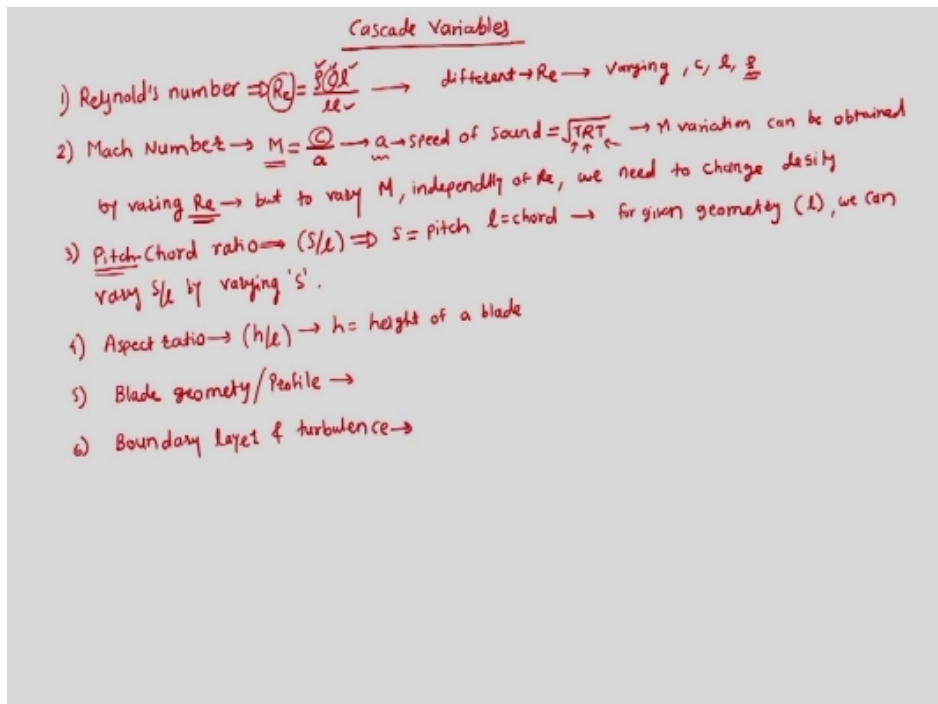 Cascade Variables
1) Reynold's number ⇒ Re = ρcl/μ → different → Re → varying, c, l, ρ
2) Mach Number → M = c/a → a → speed of sound = √γRT → M variation can be obtained
by varing Re → but to vary M, independlly of Re, we need to change desity
3) Pitch-Chord ratio → (s/l) ⇒ s = pitch l = chord → for given geometry (l), we can
vary s/l by varying 's'.
4) Aspect ratio → (h/l) → h = height of a blade
5) Blade geomety/Profile →
6) Boundary layer & turbulence →